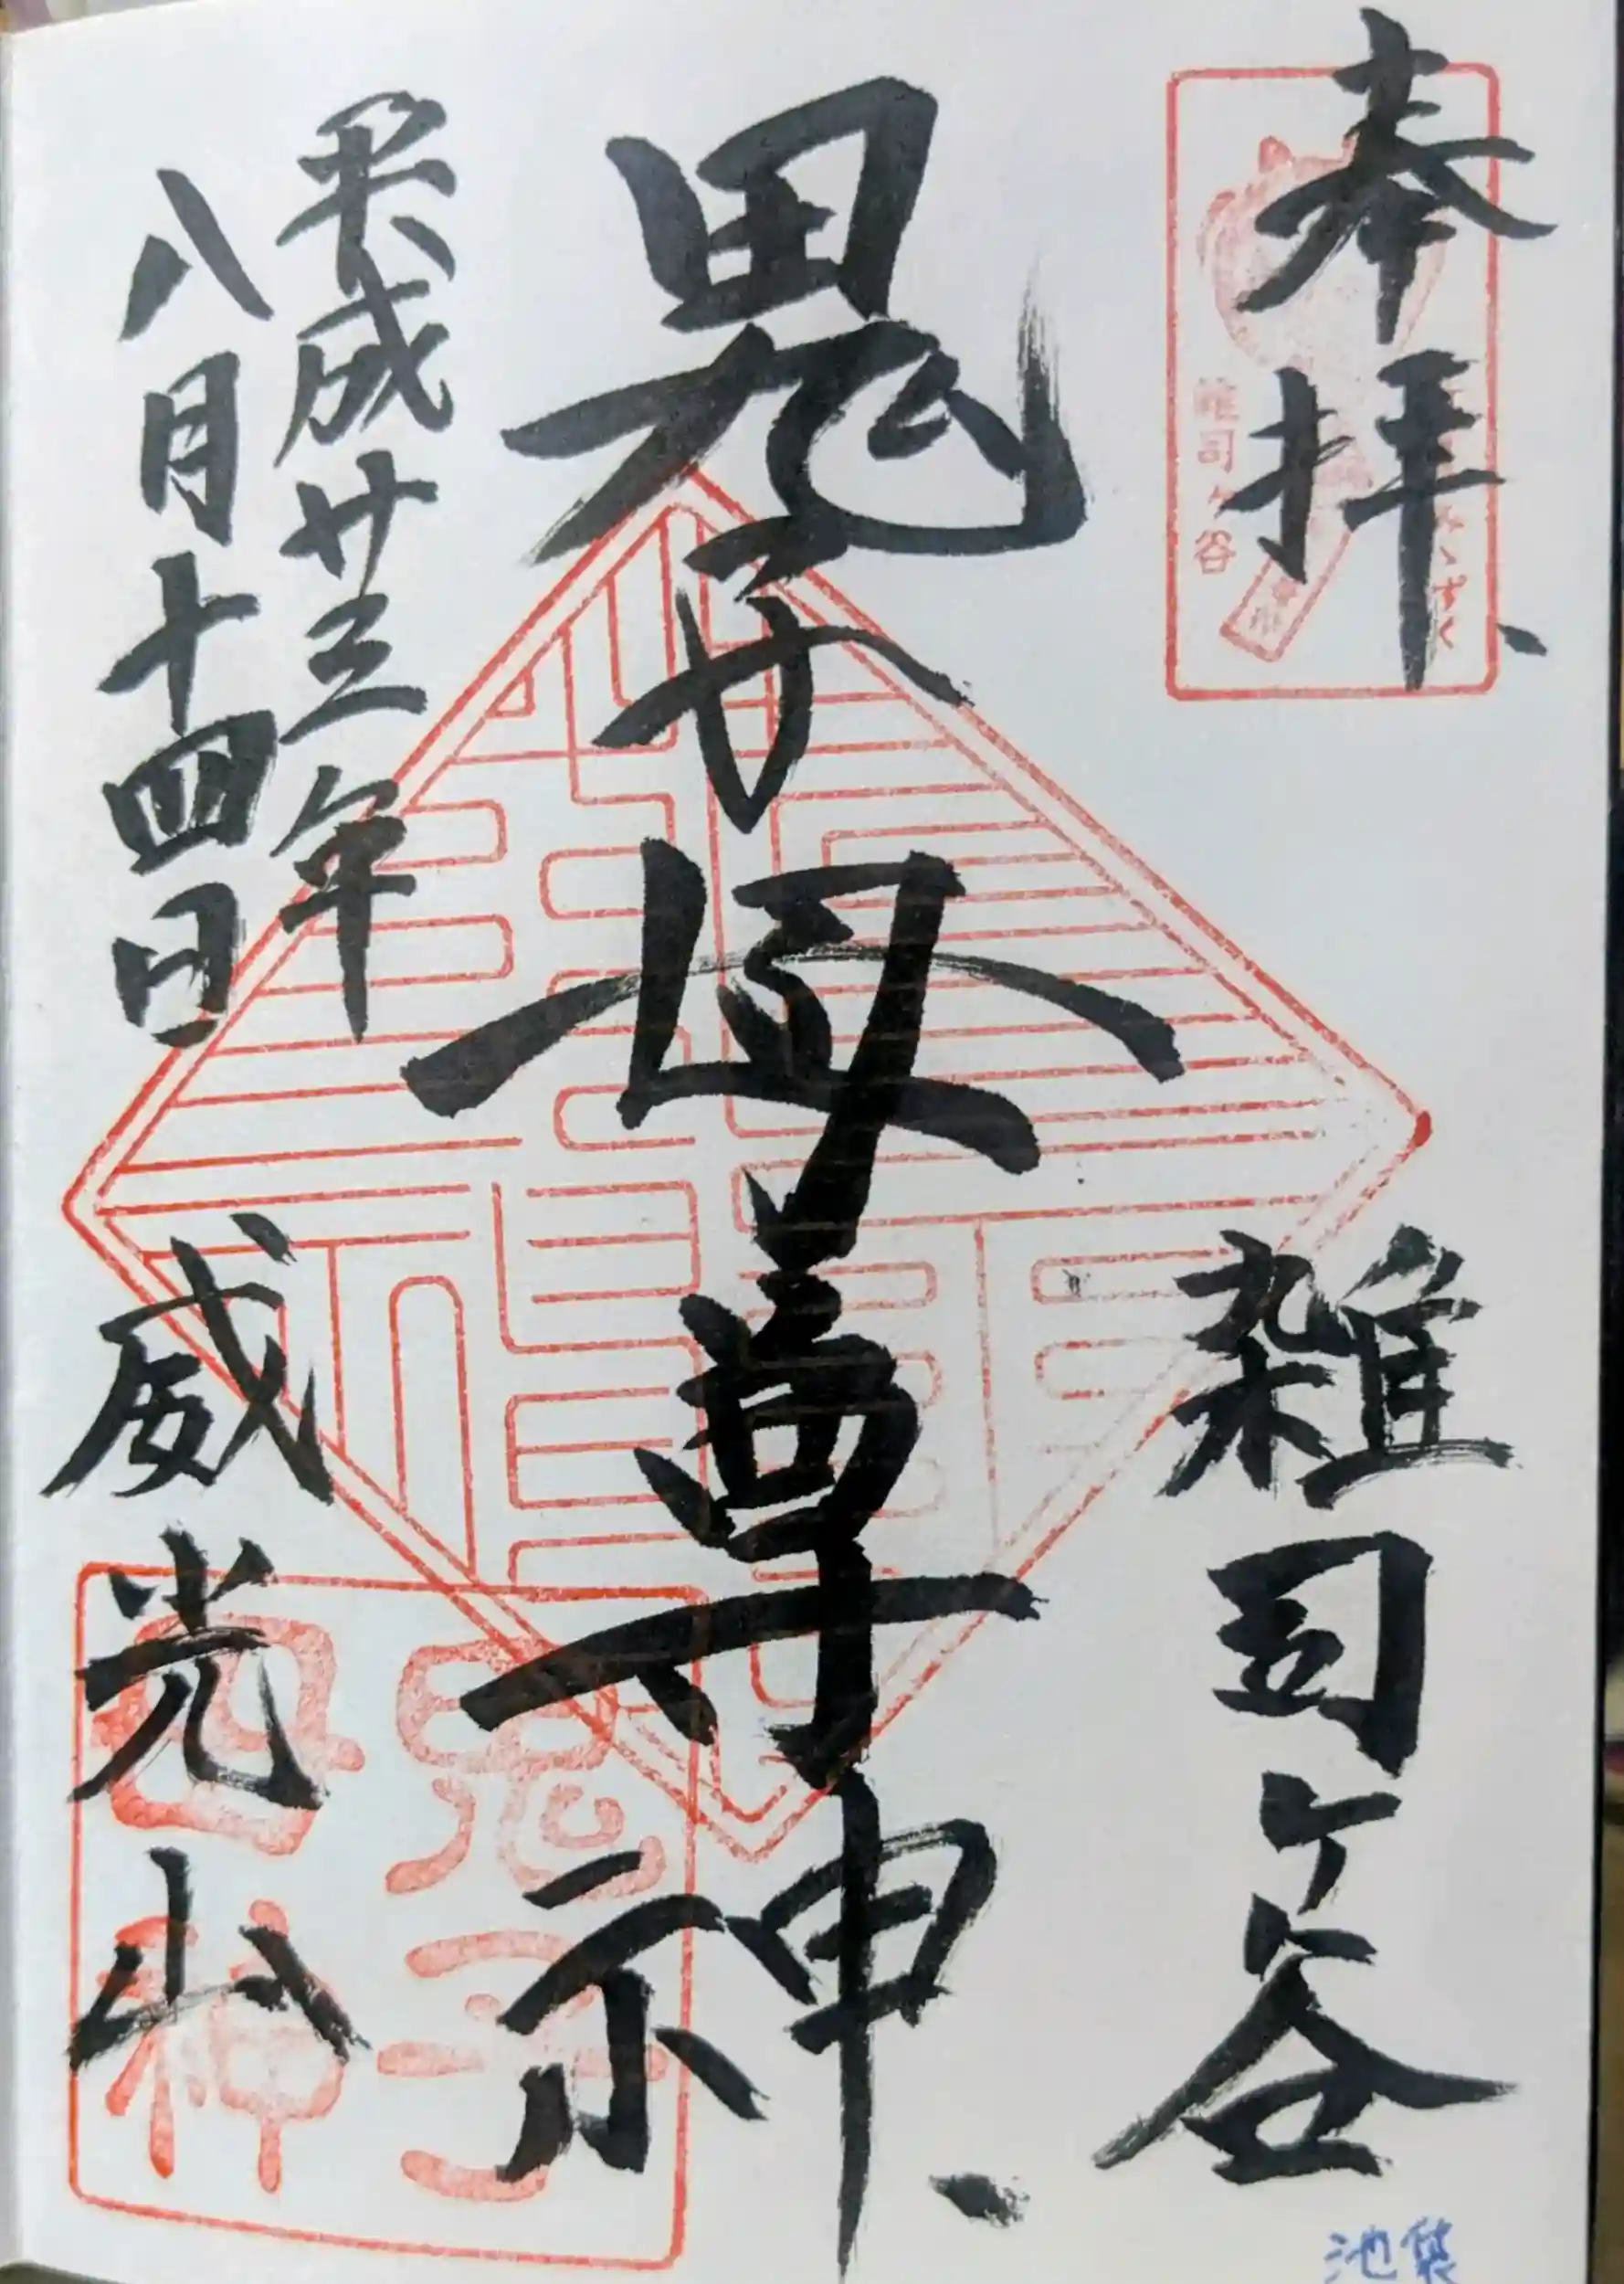 奉拝
雑司ケ谷
鬼子母尊神
平成廿三年
八月十四日
威光山
雑司ヶ谷
みゝずく
鬼子
母神
池袋